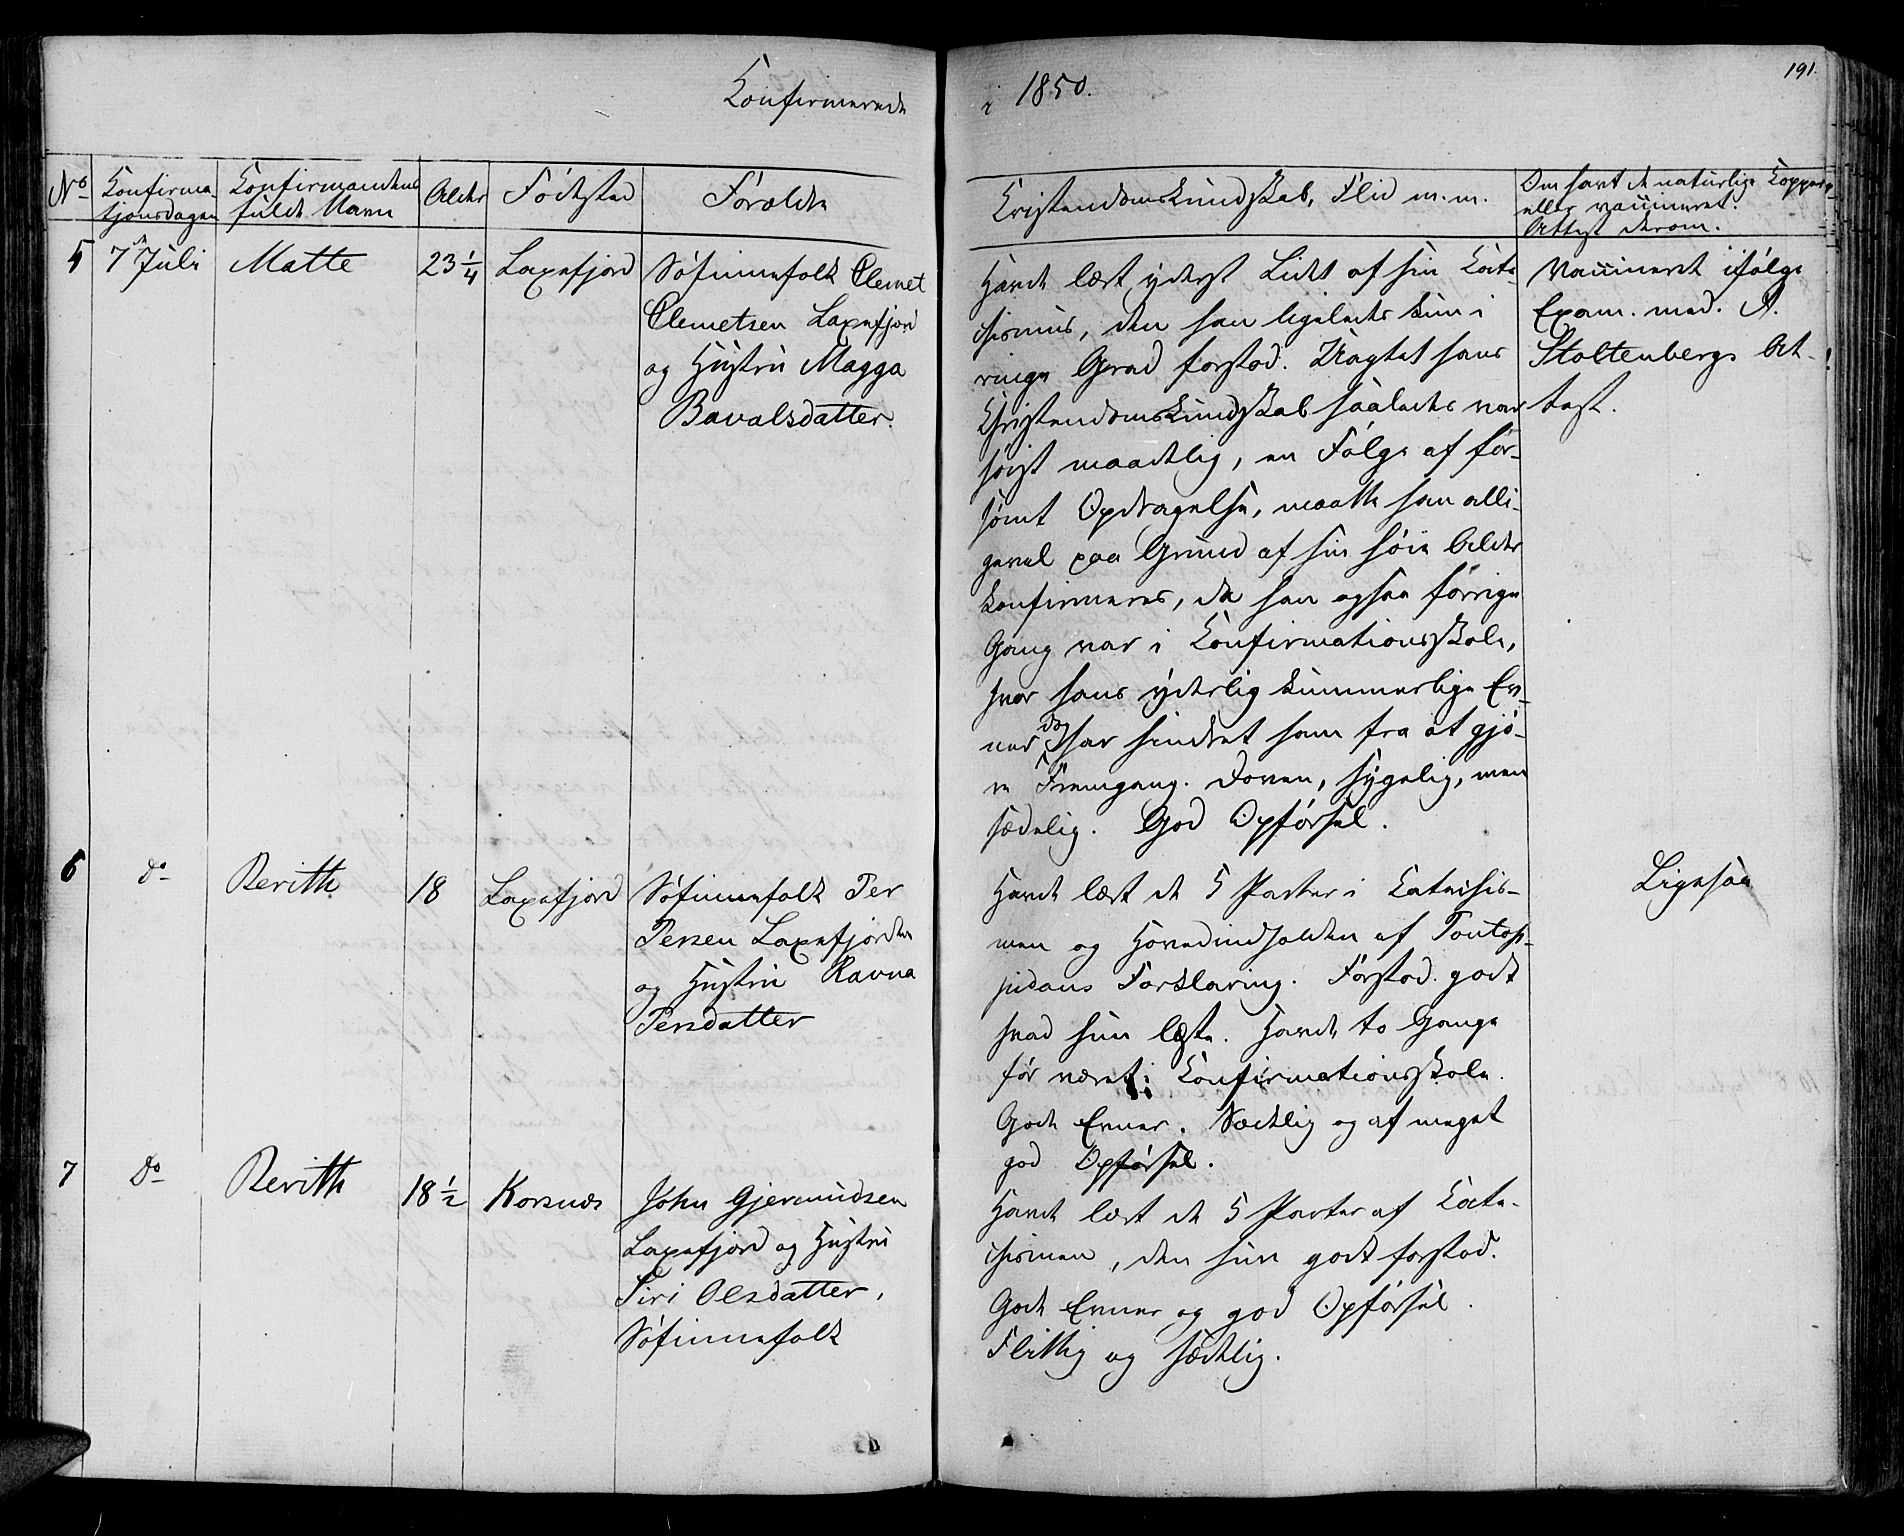 Konfirmerede i 1850.
191.
No Konfirmationsdagen Konfirmandens fulde Navn Alder Fødested Forældre Kristendomskundskab, Flid m.m. Om havt de naturlige Kopper eller vaccineret. Attest derom.
5 7de Juli Matte 23 1/4 Laxefjord
Søfinnefolk Clemet
Clemetsen Laxefjord
og Hustru Magga
Bavalsdatter.
Havde læst yderst Lidet af sin Kate-
chismus, den han ligeledes kun i
ringe Grad forstod. Uagtet hans
Christendomskundskab saaledes var
høist maadelig, en Følge af for-
sømt Opdragelse, maatte han alli-
gevel paa Grund af sin høie Alder
konfirmeres, da han ogsaa forrige
Gang var i Konfirmationsskole,
hvor hans yderlig kummerlige Ev-
ner dog har hindret ham fra at gjø-
re Fremgang. Doven, sygelig, men
sædelig. God Opførsel.
Vaccineret ifølge
Exam. med. A.
Stoltenbergs At-
test.
6 Do Berith 18 Laxefjord
Søfinnefolk Per
Persen Laxefjorden
og Hustru Ravna
Persdatter
Havde læst de 5 Parter i Katechis-
men og Hovedindholden af Pontop-
pidans Forklaring. Forstod godt
hvad hun læste. Havde to Gange
før været i Konfirmationsskole.
Gode Evner. Sædelig og af meget
god Opførsel.
Ligesaa
7 Do Berith 18 1/2 Korsnæs
John Gjermundsen
Laxefjord og Hustru
Siri Olsdatter,
Søfinnefolk
Havde læst de 5 Parter af Kate-
chismen, den hun godt forstod.
Gode Evner og god Opførsel.
Flittig og sædelig.